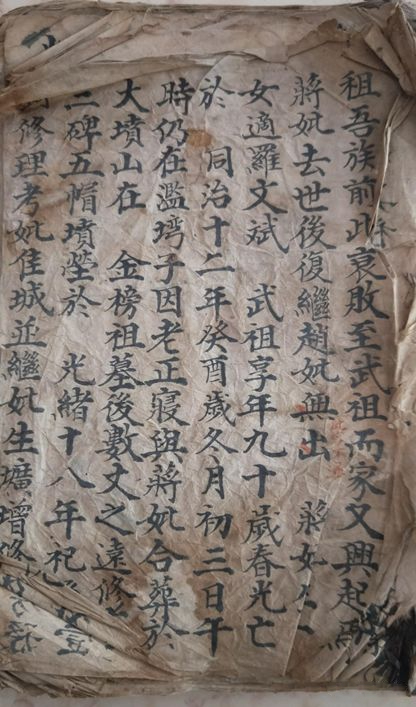 祖吾族前此衰敗至武祖而家又興起
蔣妣去世後復繼趙妣與出 蔣妣
女適羅文斌 武祖享年九十歲春光亡
於 同治十二年癸酉歲冬月初三日午
時仍在濫塆子因老正寢與蔣妣合葬於
大墳山在 金榜祖墓後數丈之遠修
三碑五帽墳塋於 光緒十八年
修理考妣佳城並繼妣生壙增修